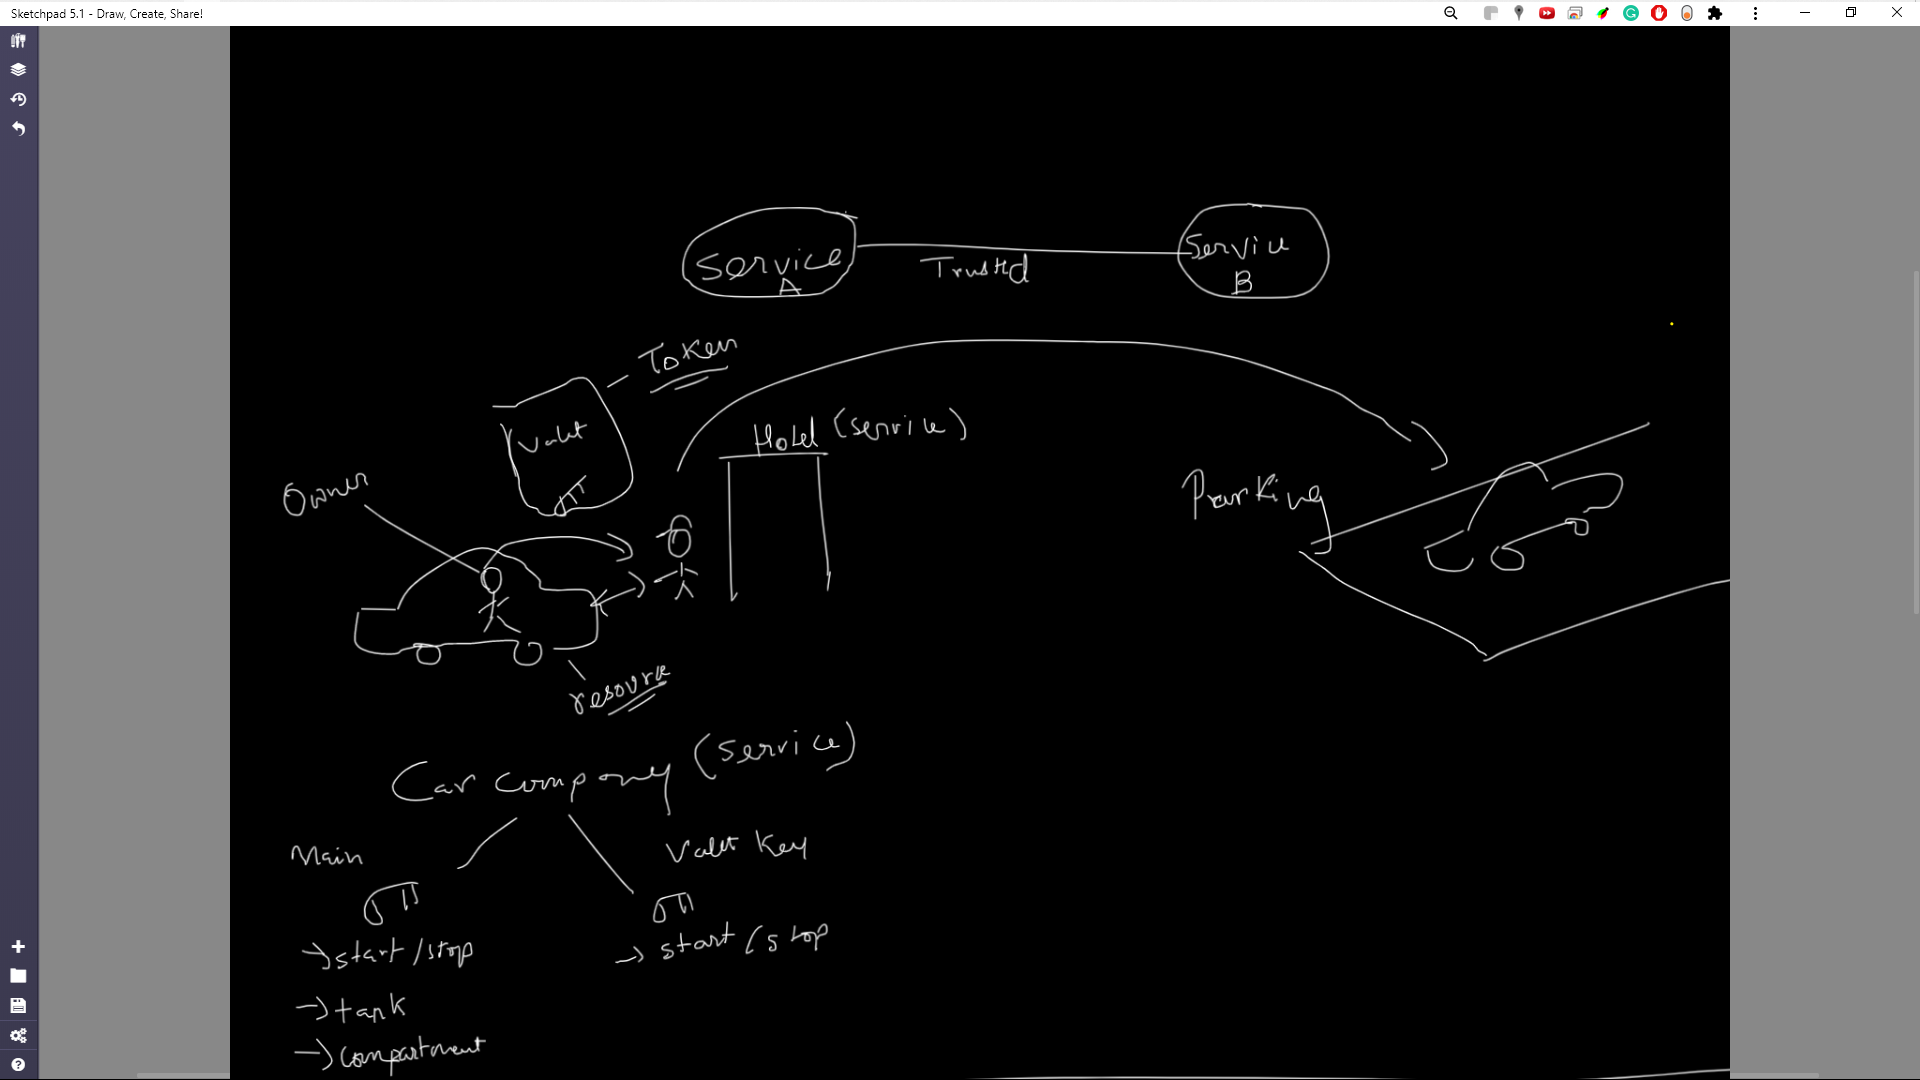 Sketchpad 5.1 - Draw, Create, Share!
Service
A
Trusted
Service
B
Token
Valet
Hotel (Service)
Owner
Parking
resource
Car company (Service)
Main
Valet Key
→ start/stop
→ start/stop
→ tank
→ compartment